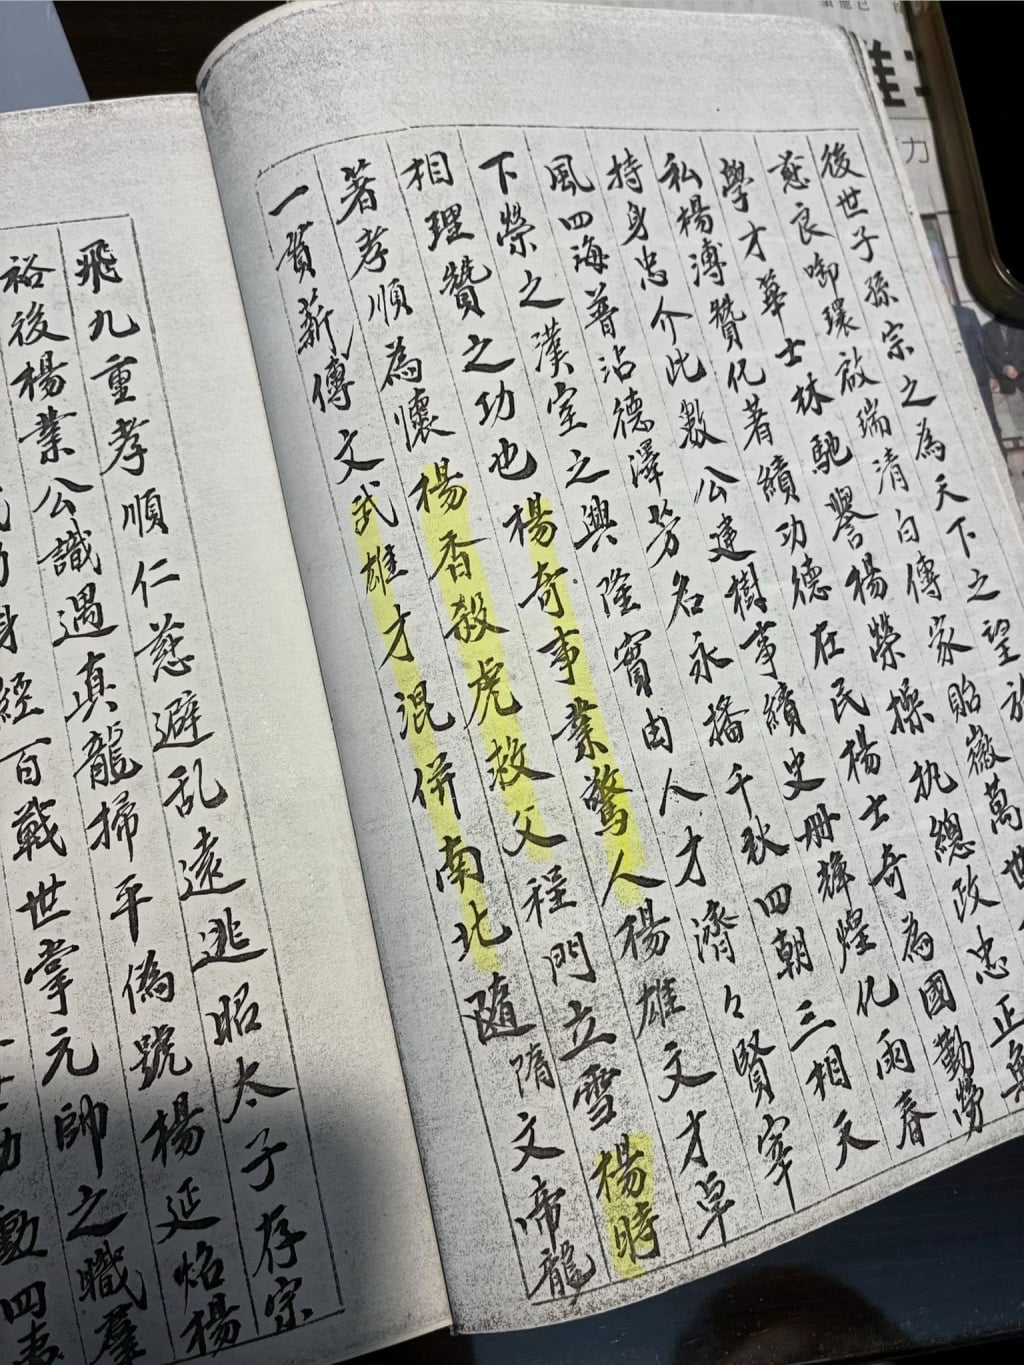 後世子孫宗之為天下之望
慈良啣環啟瑞清白傳家貽徽萬世
學才華士林馳譽楊榮操执總政忠正
私楊溥贊化著績功德在民楊士奇為國勤勞
持身忠介此數公建樹事績史冊輝煌化雨春
風四海普沾德澤芳名永播千秋四朝三相天
下榮之漢室之興隆實由人才濟々賢宰
相理贊之功也楊奇事業驚人楊雄文才卓
著孝順為懷楊香殺虎救父程門立雪楊時
一貫薪傳文武雄才混併南北隨隋文帝龍
飛九重孝順仁慈避乱遠逃昭太子存宗
裕後楊業公識遇真龍掃平偽號楊延焰楊
身經百戰世掌元帥之職羣
勳四夷